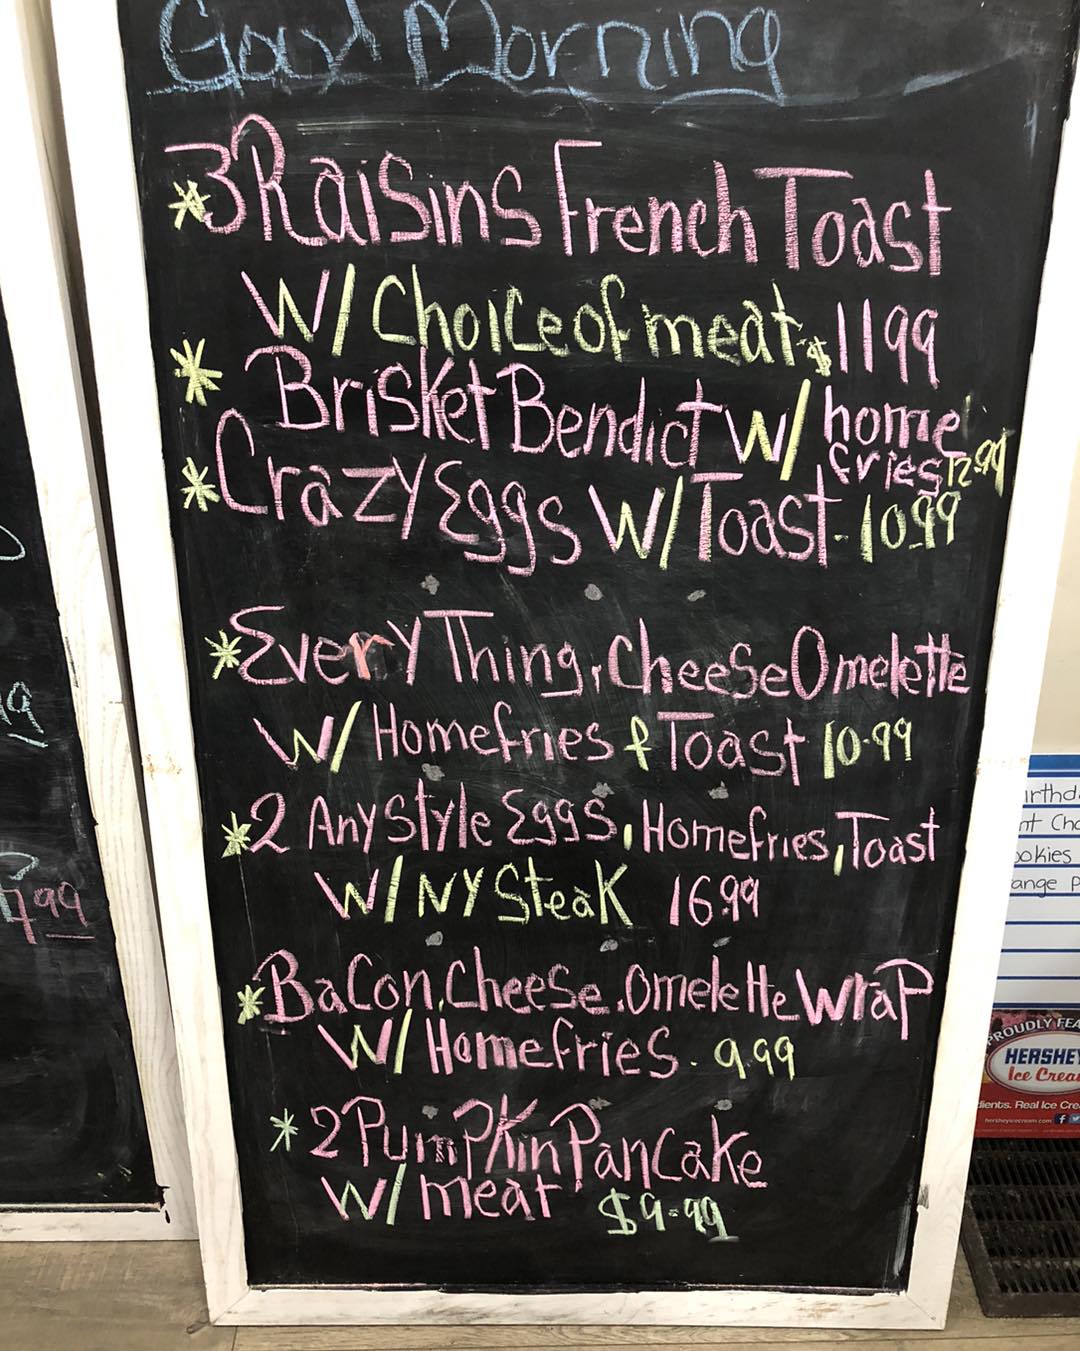 Good Morning
*3 Raisins French Toast
W/ Choice of meat. $11 99
* Brisket Bendict W/ home
fries 12.99
* Crazy Eggs W/ Toast. 10.99
* EveryThing, Cheese Omelette
W/ Homefries & Toast 10.99
*2 Any Style Eggs, Homefries, Toast
W/ NY Steak 16.99
* Bacon, Cheese, Omelette Wrap
W/ Homefries. 9.99
* 2 Pumpkin Pancake
W/ meat $9.99
7.99
irthd
nt Cho
ookies
ange P
PROUDLY FEA
HERSHEY
Ice Crea
dients. Real Ice Cre
hersheyicecream.com